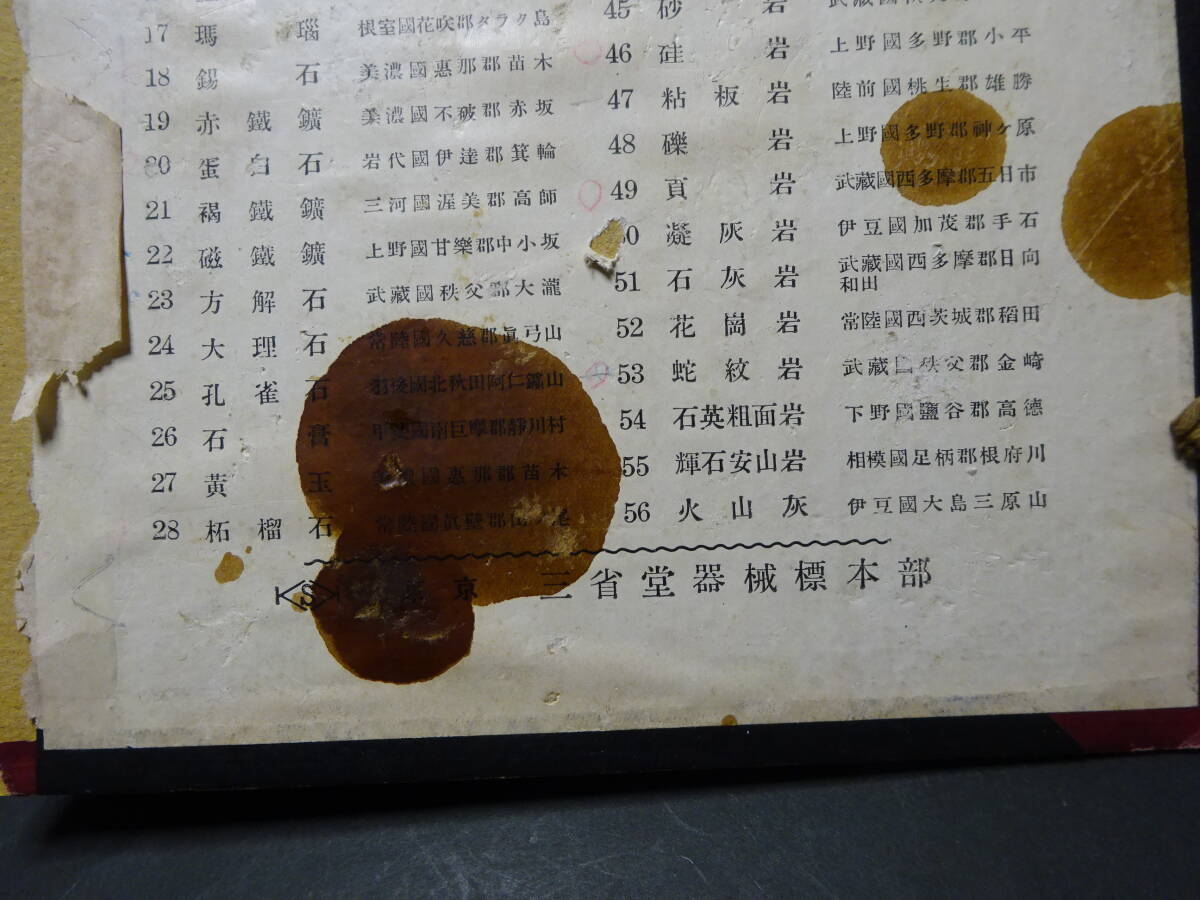 17 瑪瑙 根室國花咲郡タラク島
18 錫石 美濃國惠那郡苗木
19 赤鐵鑛 美濃國不破郡赤坂
20 蛋白石 岩代國伊達郡箕輪
21 褐鐵鑛 三河國渥美郡高師
22 磁鐵鑛 上野國甘樂郡中小坂
23 方解石 武藏國秩父郡大瀧
24 大理石 常陸國久慈郡眞弓山
25 孔雀石 羽後國北秋田阿仁鑛山
26 石膏 甲斐國南巨摩郡靜川村
27 黃玉 美濃國惠那郡苗木
28 柘榴石 常陸國眞壁郡山ノ尾
45 砂岩 武藏國秩父
46 硅岩 上野國多野郡小平
47 粘板岩 陸前國桃生郡雄勝
48 礫岩 上野國多野郡神ヶ原
49 頁岩 武藏國西多摩郡五日市
50 凝灰岩 伊豆國加茂郡手石
51 石灰岩 武藏國西多摩郡日向
和田
52 花崗岩 常陸國西茨城郡稻田
53 蛇紋岩 武藏國秩父郡金崎
54 石英粗面岩 下野國鹽谷郡高德
55 輝石安山岩 相模國足柄郡根府川
56 火山灰 伊豆國大島三原山
KS 東京 三省堂器械標本部